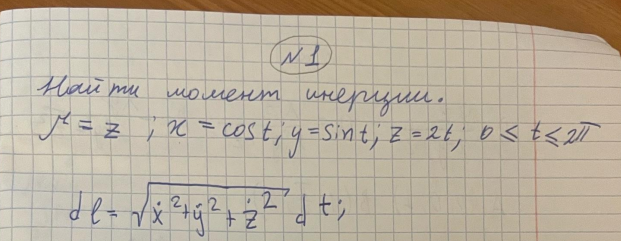 №1
Найти момент инерции.
μ = z ; x = cost; y = sint; z = 2t; 0 ≤ t ≤ 2π
dl = √(ẋ² + ẏ² + ż²) dt;